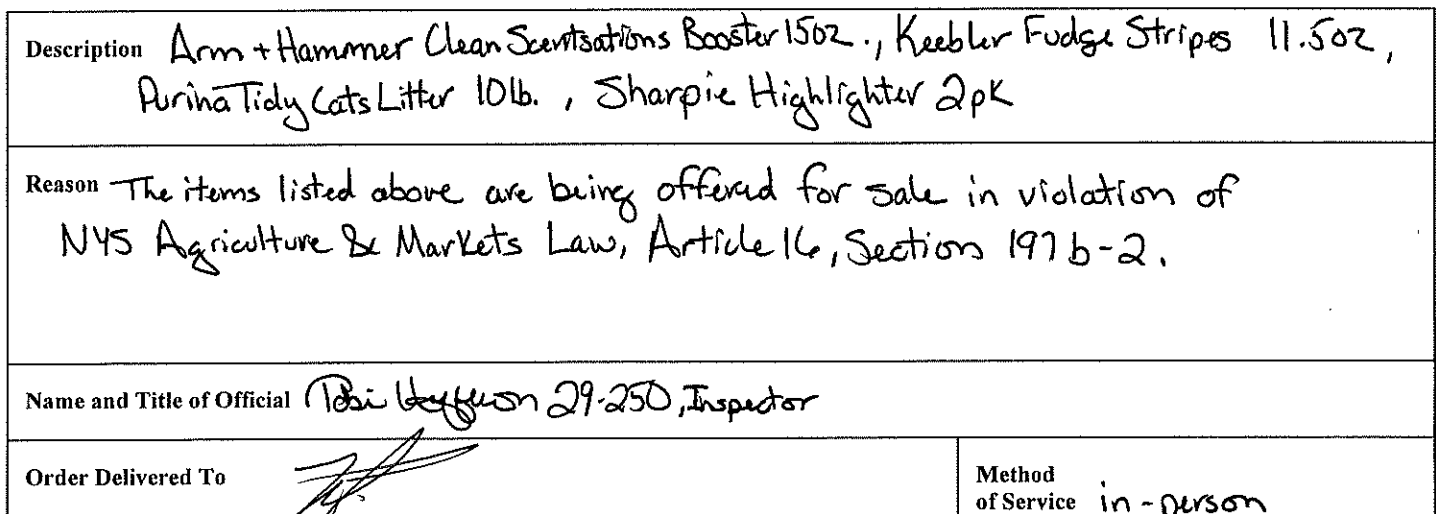 Description Arm + Hammer Clean Scentsations Booster 15oz., Keebler Fudge Stripes 11.5oz,
Purina Tidy Cats Litter 10lb., Sharpie Highlighter 2pk
Reason The items listed above are being offered for sale in violation of
NYS Agriculture & Markets Law, Article 16, Section 197b-2.
Name and Title of Official 29-250, Inspector
Order Delivered To
Method
of Service in-person